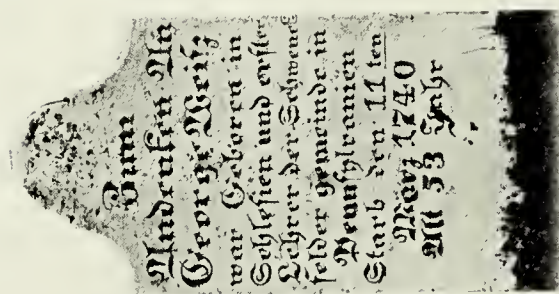 Zum
Andenken An
George Weiß
war Geboren in
Schlesien und erster
Lehrer der Schwenck
felder gemeinde in
Pennsylvanien
Starb den 11 ten
März 1740
Alt 53 Jahr